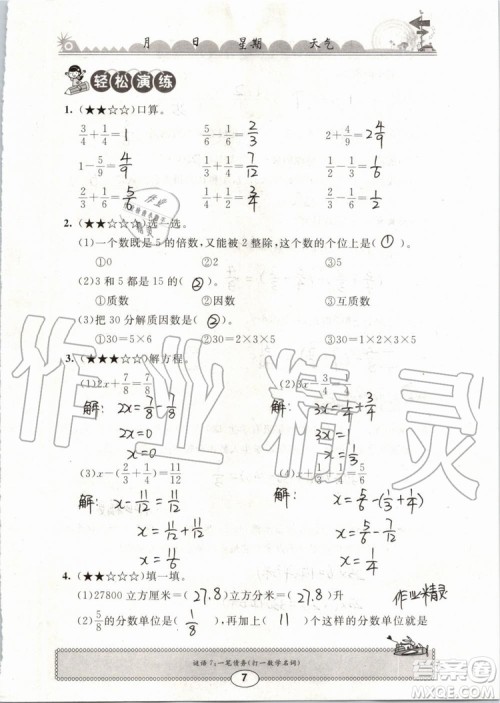 月 日 星期 天气
轻松演练
1. (★★☆☆)口算。
3/4+1/4= 1 5/6-1/6= 2/3 2+4/9= 2 4/9
1-5/9= 4/9 1/3+1/4= 7/12 1/2-1/3= 1/6
1/2+1/3= 5/6 1/2+1/4= 3/4
2. (★★☆☆)选一选。
(1)一个数既是5的倍数,又能被2整除,这个数的个位上是( ① )
①0 ②2 ③5
(2)3和5都是15的( ② )
①质数 ②质因数 ③互质数
(3)把30分解质因数是( ② )
①30=5×6 ②30=2×3×5 ③30=1×2×3×5
3. (★★★☆)解方程。
(1)2x+7/8=7/8 (2)3x-3/4=1/4
解: 2x=7/8-7/8 解: 3x=1/4+3/4
2x=0 3x=1
x=0 x=1/3
(3)x-(2/3+1/4)=11/12 (4)1/3+1/4+x=5/6
解: x-11/12=11/12 解: x=5/6-(1/3+1/4)
x=11/12+11/12 x=5/6-7/12
x=11/6 x=1/4
4. (★★☆☆)填一填。
(1)27800立方厘米=( 27.8 )立方分米=( 27.8 )升
(2)5/8的分数单位是( 1/8 ),再加上( 11 )个这样的分数单位就是
作业精灵
谜语7:一笔债务(打一数学名词)
7
作业精灵